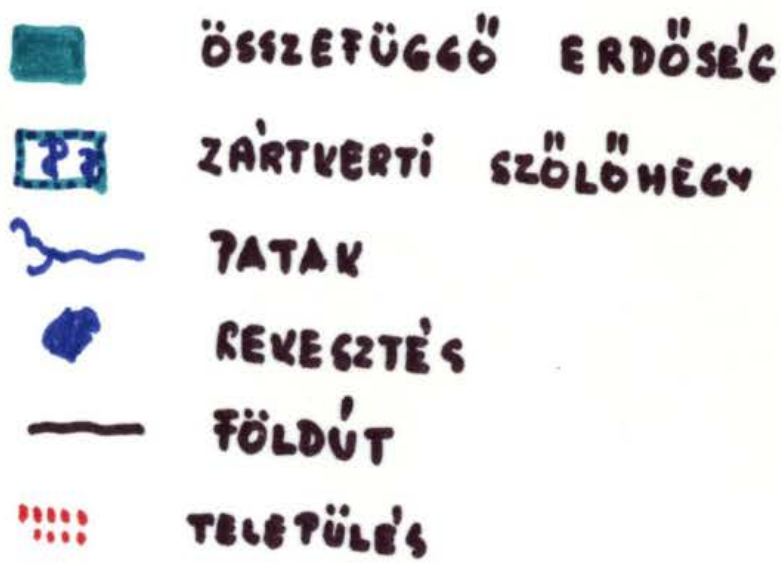 ÖSSZEFÜGGŐ ERDŐSÉG
ZÁRTKERTI SZŐLŐHEGY
PATAK
REKESZTÉS
FÖLDÚT
TELEPÜLÉS